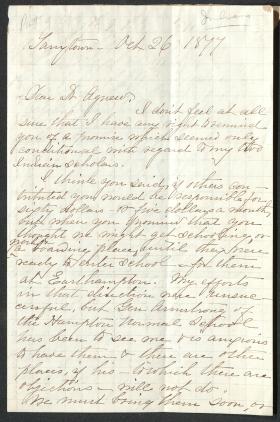 Tarrytown - Oct 26 1877
Dear Dr Agnew.
I don't feel at all
sure that I have any right to remind
you of a promise which seemed only
conditional with regard to my two
Indian Scholars.
I think you said, if others con-
tributed you would be responsible for
sixty dollars - or five dollars a month,
but when you promised that you
thought we might get schooling, or
a boarding place, until they were
ready to enter school - for them
at Easthampton. My efforts
in that direction were unsuc-
cessful, but Gen Armstrong of
the Hampton Normal School
has been to see me & is anxious
to have them - & there are other
places, if his - to which there are
objections - will not do.
We must bring them soon, or